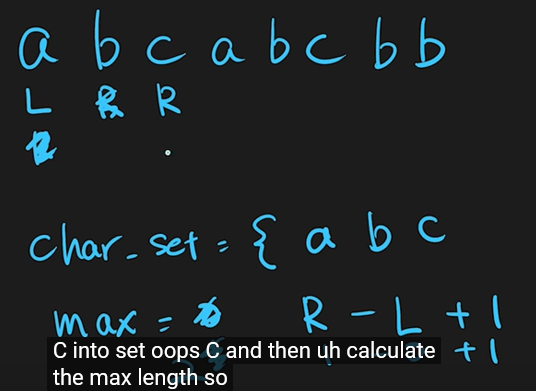 a b c a b c b b
L R R
char_set = { a b c
max = R - L + 1
+ 1
C into set oops C and then uh calculate
the max length so